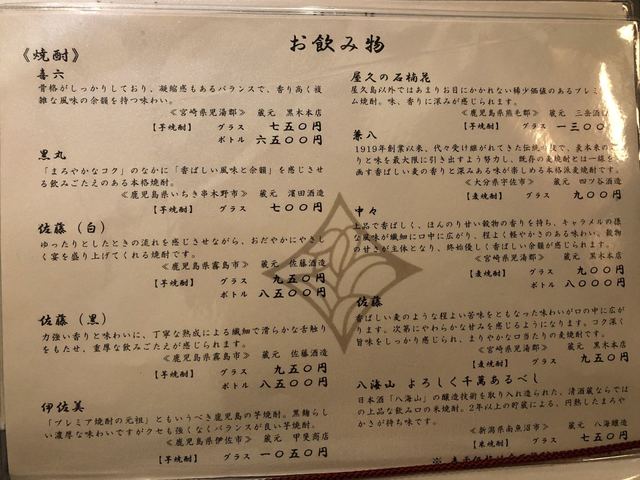 お飲み物
《焼酎》
喜六
骨格がしっかりしており、凝縮感もあるバランスで、香り高く複
雑な風味の余韻を持つ味わい。
≪宮崎県児湯郡≫ 蔵元 黒木本店
【芋焼酎】 グラス 七五〇円
ボトル 六五〇〇円
黒丸
「まろやかなコク」のなかに「香ばしい風味と余韻」を感じさせ
る飲みごたえのある本格焼酎。
≪鹿児島県いちき串木野市≫ 蔵元 濵田酒造
【芋焼酎】 グラス 七〇〇円
佐藤(白)
ゆったりとしたときの流れを感じさせながら、おだやかにやさし
く宴を盛り上げてくれる焼酎です。
≪鹿児島県霧島市≫ 蔵元 佐藤酒造
【芋焼酎】 グラス 九五〇円
ボトル 八五〇〇円
佐藤(黒)
力強い香りと味わいに、丁寧な熟成による繊細で滑らかな舌触り
をもたせ、重厚な飲みごたえが感じられます。
≪鹿児島県霧島市≫ 蔵元 佐藤酒造
【芋焼酎】 グラス 九五〇円
ボトル 八五〇〇円
伊佐美
「プレミア焼酎の元祖」ともいうべき鹿児島の芋焼酎。黒麹らし
い濃厚な味わいですがクセも強くなくバランスが良い芋焼酎。
≪鹿児島県伊佐市≫ 蔵元 甲斐商店
【芋焼酎】 グラス 一〇五〇円
屋久の石楠花
屋久島以外ではあまりお目にかかれない稀少価値のあるプレミア
ム焼酎。味、香りに深みが感じられます。
≪鹿児島県熊毛郡≫ 蔵元 三岳酒
【芋焼酎】 グラス 一三〇〇
兼八
1919年創業以来、代々受け継がれてきた伝統 で、麦本来の
りと味を最大限に引き出すよう努力し、既存の麦焼酎とは一線を
画す香ばしい麦の香りと深みある味が楽しめる本格派麦焼酎です。
≪大分県宇佐市≫ 蔵元 四ツ谷酒造
【麦焼酎】 グラス 九〇〇円
中々
上品で香ばしく、ほんのり甘い穀物の香りを持ち、キャラメルの様
な風味が繊細に口中に広がり、程よく軽やかさのある味わい。穀物
の甘さが主体となり、終始優しく香ばしい余韻が感じられます。
≪宮崎県児湯郡≫ 蔵元 黒木本店
【麦焼酎】 グラス 九〇〇円
ボトル 八〇〇〇円
佐藤
香ばしい麦のような程よい苦味をともなった味わいが口の中に広が
ります。次第にやわらかな甘みを感じるようになります。コク深く
旨味をしっかり感じられ、まりやかな口当たりの麦焼酎です。
≪宮崎県児湯郡≫ 蔵元 黒木本店
【麦焼酎】 グラス 九五〇円
八海山 よろしく千萬あるべし
日本酒「八海山」の醸造技術を取り入れ造られた、清酒蔵ならでは
の上品な飲み口の米焼酎。2年以上の貯蔵による、円熟したまろや
かさが持ち味です。
≪新潟県南魚沼市≫ 蔵元 八海醸造
【米焼酎】 グラス 七五〇円